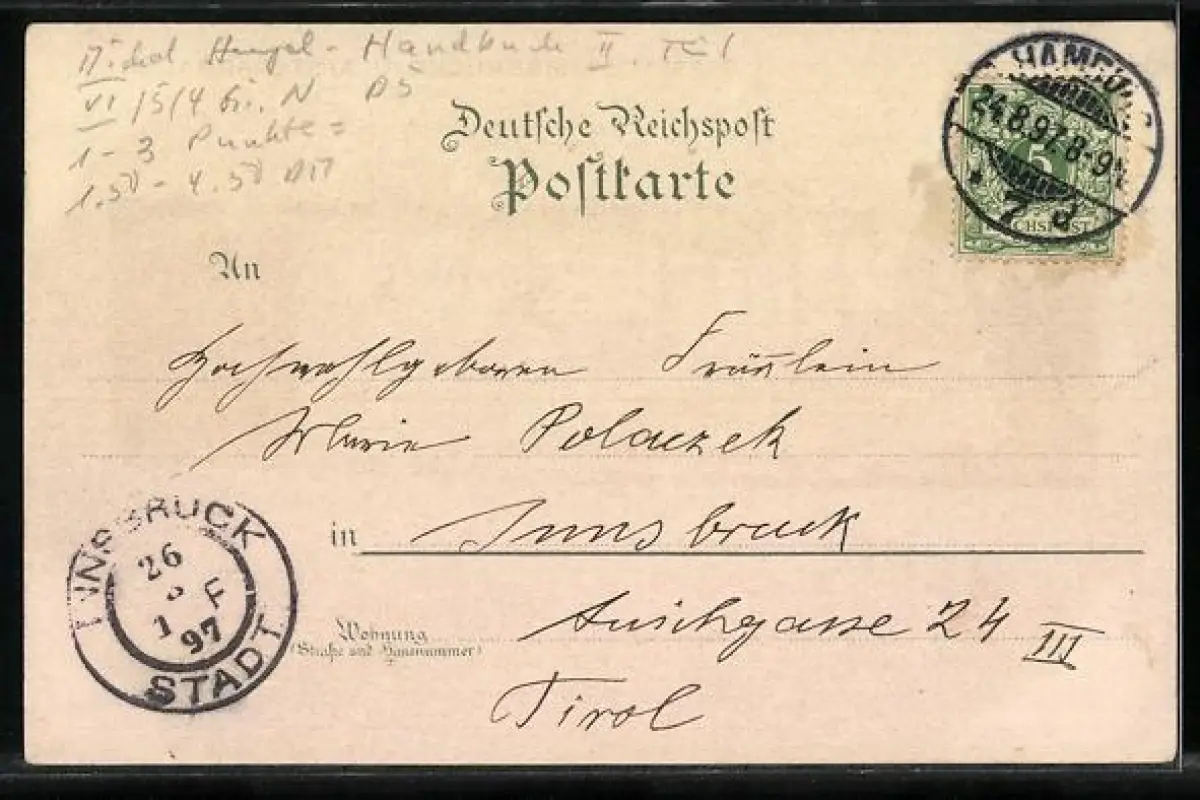 Handbuch II. Teil
VI/5/4
1-3 Punkte =
1.50 - 4.50 DM
Deutsche Reichspost
Postkarte
HAMBURG
24.8.97. 8-9N
* 7 d
5
REICHSPOST
An
Hochwohlgeboren Fräulein
Marie Polaczek
in Innsbruck
Wohnung
(Straße und Hausnummer)
24 III
Tirol
INNSBRUCK
26
8
1 F
97
STADT